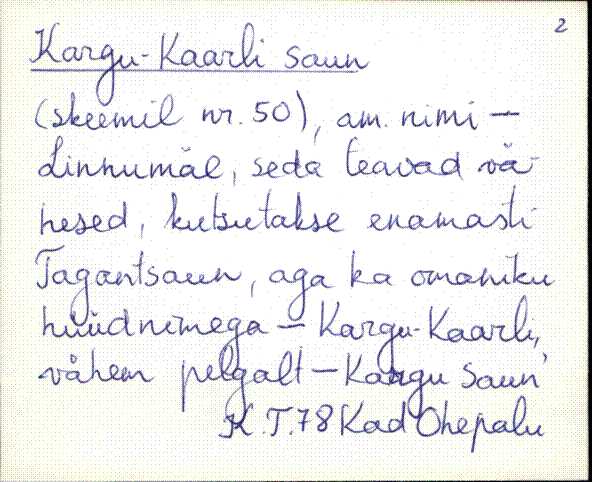 2
Kargu-Kaarli saun
(skeemil nr. 50), am. nimi –
Linnumäe, seda teavad vä-
hesed, kutsutakse enamasti
Tagantsaun, aga ka omaniku
hüüdnimega – Kargu-Kaarli,
vähem pelgalt – Kargu saun
K.T.78 Kad Ohepalu